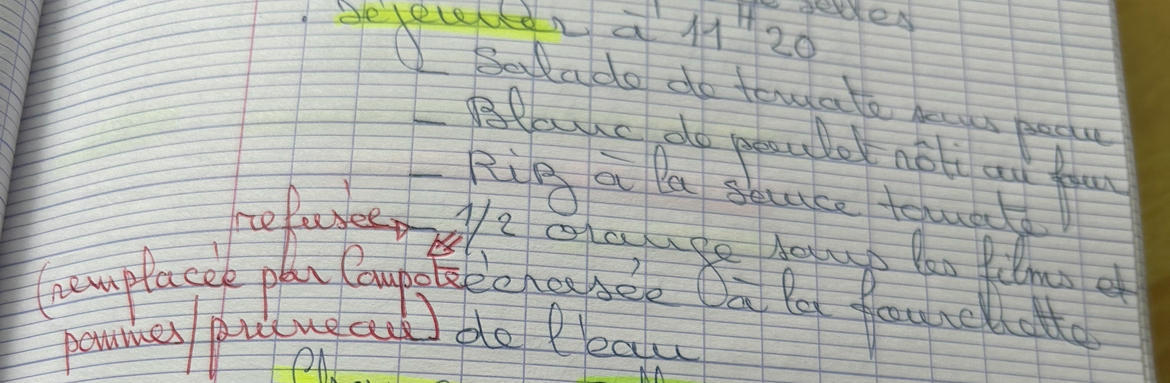 selles
. Déjeuner à 11H20
- Salade de tomate sans peau
- Blanc de poulet rôti au four
- Riz à la sauce tomate
refusée → - 1/2 orange sans les films et
(remplacée par Compote écrasée à la fourchette
pommes/pruneaux) de l'eau